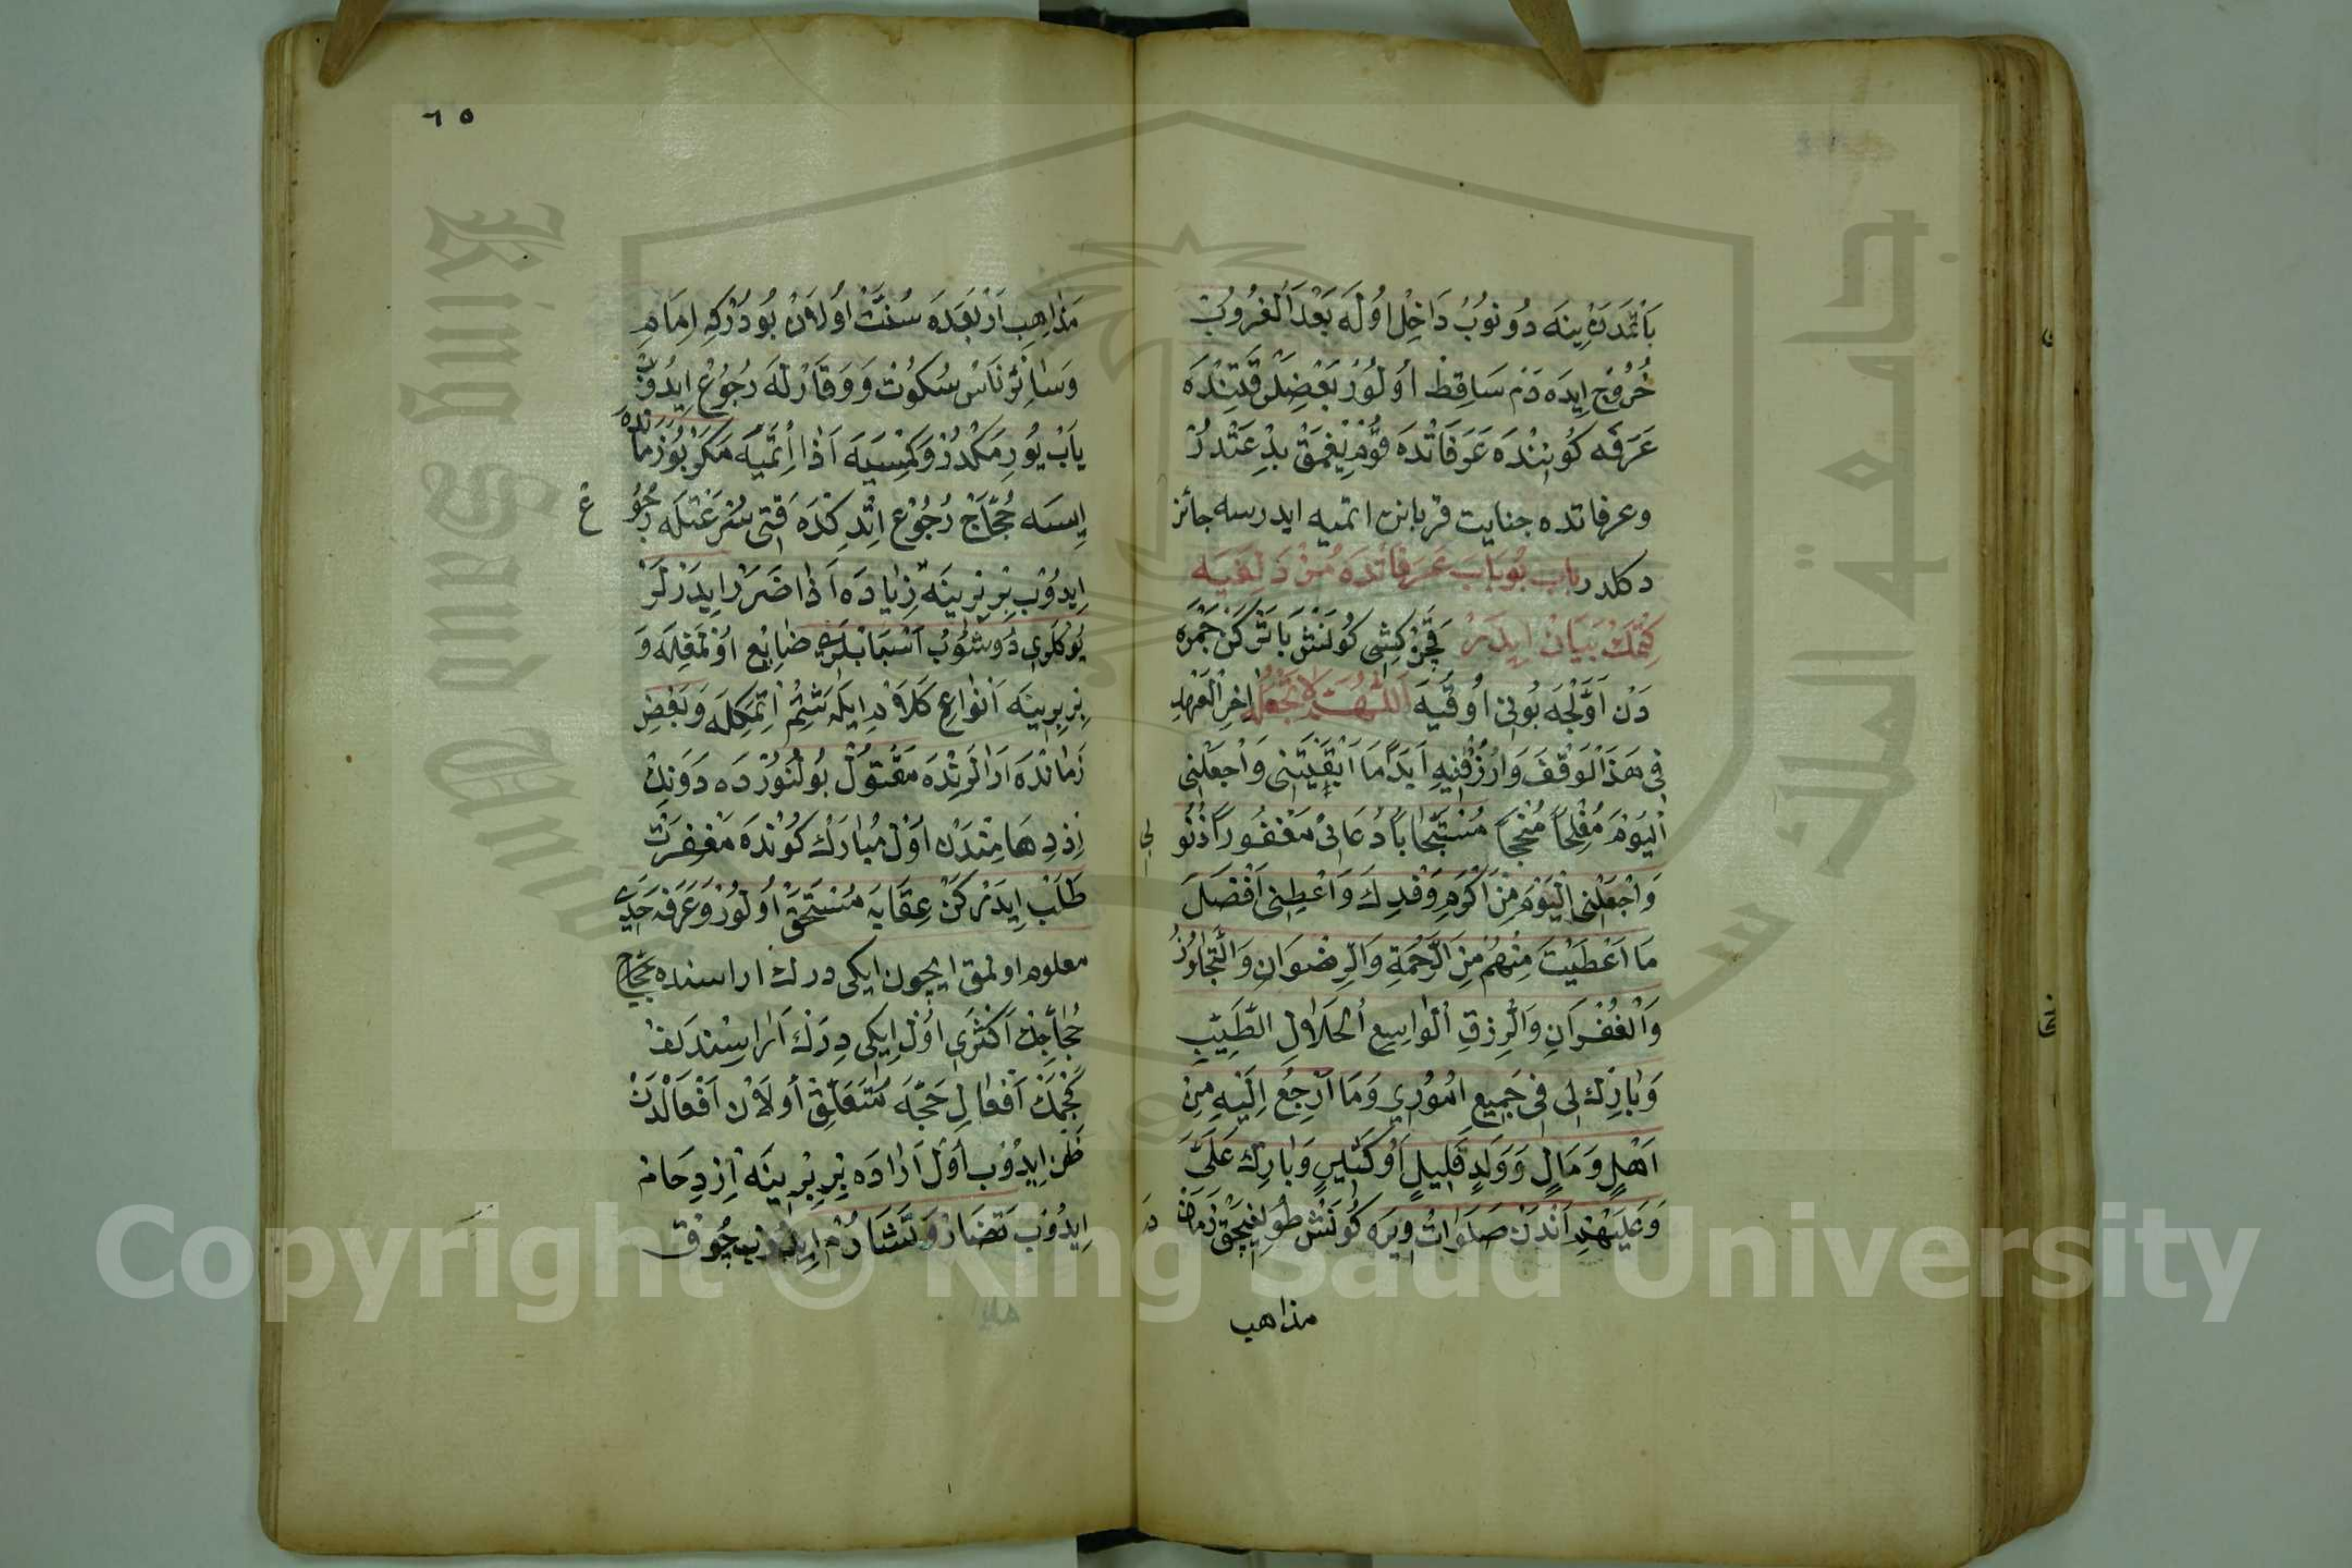 باتمدن ينه دونوب داخل اوله بعد الغروب
خروج ايده دم ساقط اولور بعضلر قتنده
عرفه كوننده عرفاتده قوم يغمق بدعتدر
وعرفاتده جنايت قربانن اتميه ايدرسه جائز
دكلدر باب بو باب عرفاتده مزدلفيه
كتمك بيان ايدر قچن كشى كونش باتركن جمره
دن اولجه بونى اوقيه اللهم لا تجعله اخر العهد
فى هذا الوقف وارزقنيه ابدا ما ابقيتنى واجعلنى
اليوم مفلحا منجحا مستجابا دعائى مغفورا ذنو
بى
واجعلنى اليوم من اكرم وفدك واعطنى افضل
ما اعطيت منهم من الرحمة والرضوان والتجاوز
والغفران والرزق الواسع الحلال الطيب
وبارك لى فى جميع امورى وما ارجع اليه من
اهل ومال وولد قليل او كثير وبارك على
وعليهم اندن صلوات ويره كونش طولنيجق زمان
ده
مذاهب
٦٥
مذاهب اربعده سنت اولان بودركه امام
وسائر ناس سكوت ووقارله رجوع ايدوب
ياب يوريمكدر وكمسيه اذا اتميه مكر بو زمانده
ايسه حجاج رجوع اتدكده قتى سرعتله رجو
ع
ايدوب بربرينه زياده اذا ضرر ايدرلر
يوكلرى دوشوب اسبابلرى ضايع اولمغله و
بربرينه انواع كلام ايله شتم اتمكله وبعض
زمانده ارالرنده مقتول بولنور ده دونك
ازدهامندن اول مبارك كونده مغفرت
طلب ايدركن عقابه مستحق اولور وعرفه حدى
معلوم اولمق ايچون ايكى درك اراسنده
حجاجك اكثرى اول ايكى درك اراسندن
كچمك افعال حجه متعلق اولان افعالدن
ظن ايدوب اول اراده بربرينه ازدحام
ايدوب تضار وتشارم ايدوب چوق